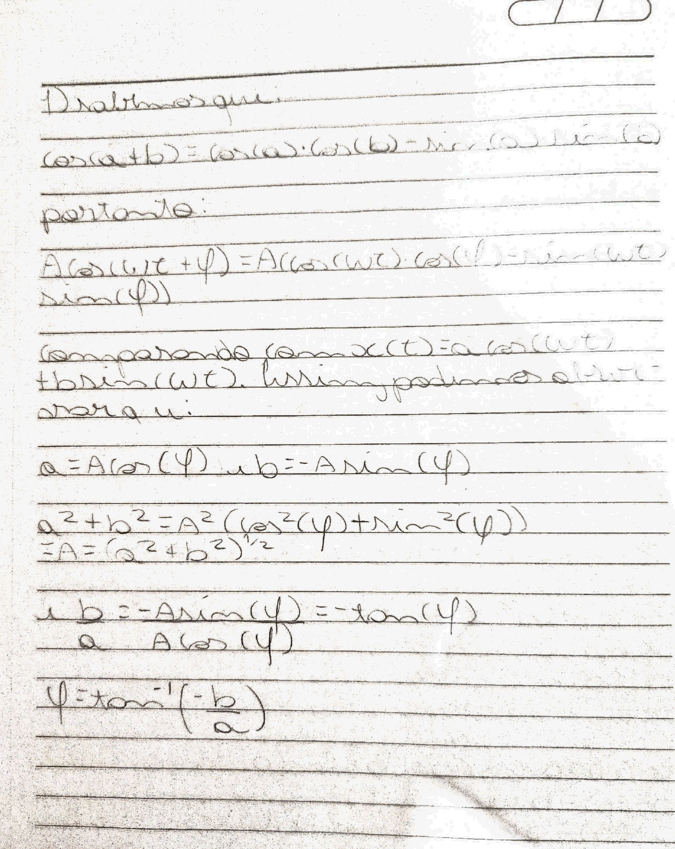 1) sabemos que:
cos(a+b)=cos(a)·cos(b)-sin(a)sin(b)
portanto:
Acos(ωt+φ)=A(cos(ωt)·cos(φ)-sin(ωt)
sin(φ))
comparando com x(t)=a cos(ωt)
+bsin(ωt). Assim, podemos obser-
var que:
a=Acos(φ) e b=-Asin(φ)
a²+b²=A²(cos²(φ)+sin²(φ))
=A=(a²+b²)^1/2
e b/a = -Asin(φ)/Acos(φ) = -tan(φ)
φ=tan⁻¹(-b/a)